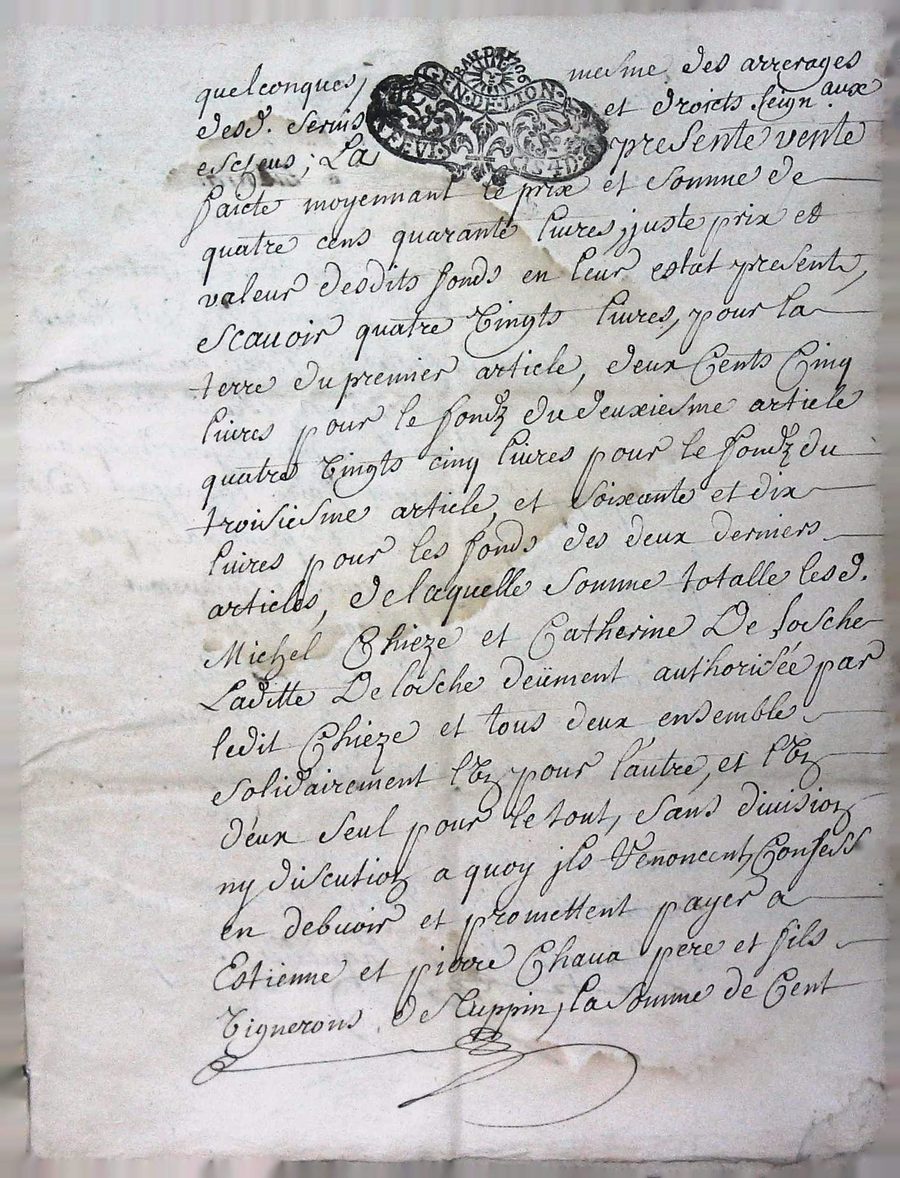 GEN·DE·LION·
quelconques, mesme des arrerages
desd. servis et droicts seign.aux
escheus; La presente vente
faicte moyennant le prix et somme de
quatre cens quarante livres, juste prix et
valeur desdits fonds en leur estat present,
scavoir quatre vingts livres, pour la
terre du premier article, deux Cents Cinq
livres pour le fondz du deuxiesme article
quatre vingts cinq livres pour le fondz du
troisiesme article, et soixante et dix
livres pour les fonds des deux derniers
articles, de laquelle somme totalle lesd.
Michel Chieze et Catherine De losche
Laditte De losche deüment authorisée par
ledit Chieze et tous deux ensemble
solidairement l'un pour l'autre, et l'un
d'eux seul pour le tout, sans division
ny discution a quoy jls renoncent, Confess
en debvoir et promettent payer a
Estienne et pierre Chava pere et fils
vignerons de Tuppin, la somme de Cent